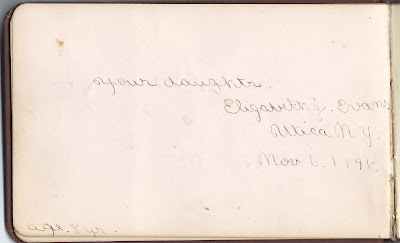 your daughter.
Elizabeth J. Evans
Utica N Y.
Nov 6. 1898.
age. 8 yr.